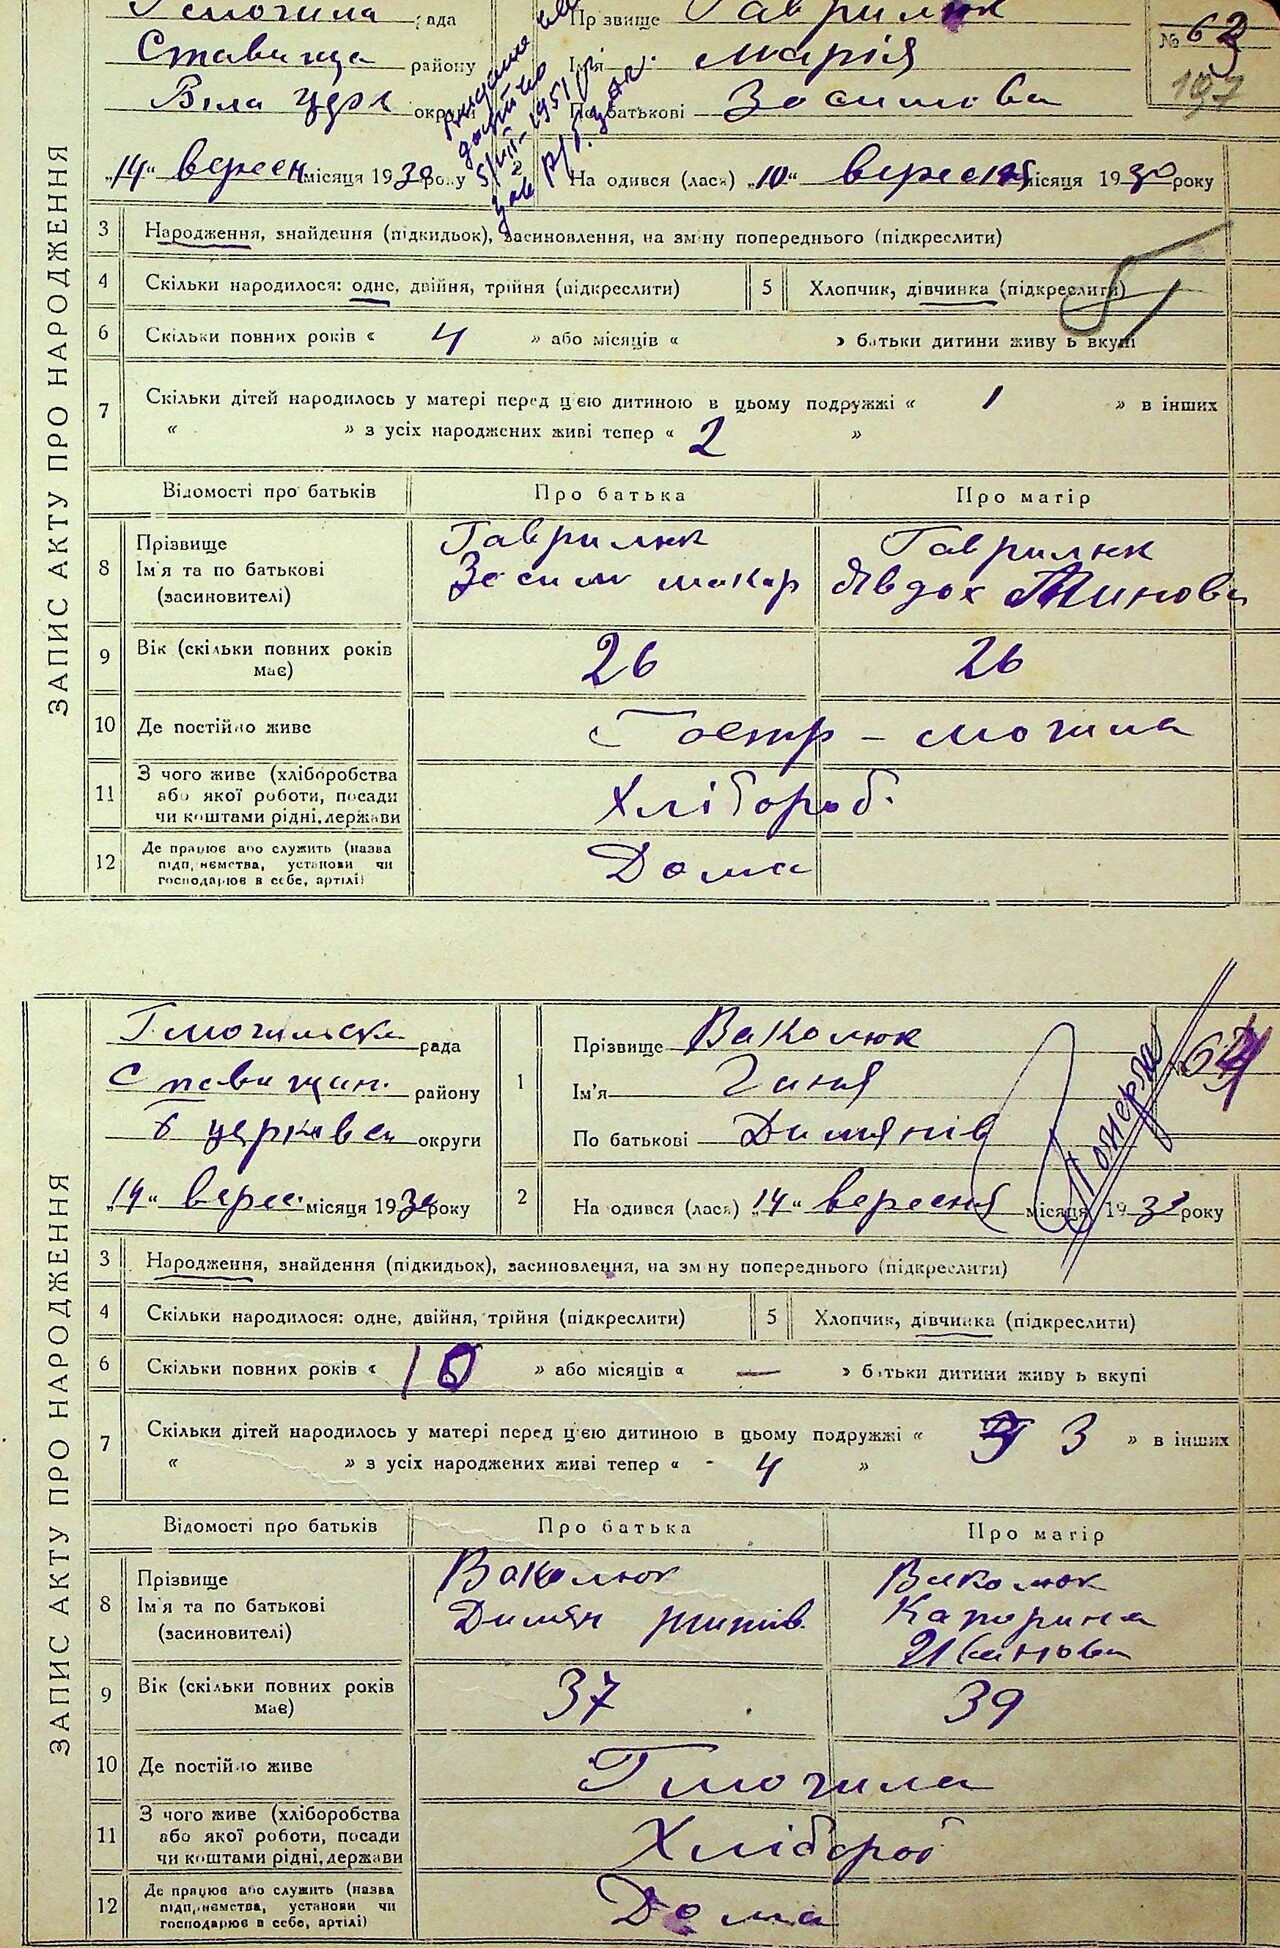 Гмогила рада
Ставища району
Біла церк округи
"14" вересн місяця 1930 року
Прізвище Гаврилюк
Ім'я Марія
По батькові Зосимова
№ 63
197
На одився (лася) "10" вересня місяця 1930 року
ЗАПИС АКТУ ПРО НАРОДЖЕННЯ
3 Народження, знайдення (підкидьок), засиновлення, на зміну попереднього (підкреслити)
4 Скільки народилося: одне, двійня, трійня (підкреслити) 5 Хлопчик, дівчинка (підкреслити)
6 Скільки повних років « 4 » або місяців « » батьки дитини живуть вкупі
7 Скільки дітей народилось у матері перед цією дитиною в цьому подружжі « 1 » в інших
« » з усіх народжених живі тепер « 2 »
Відомості про батьків Про батька Про матір
8 Прізвище
Ім'я та по батькові
(засиновителі)
Гаврилюк
Зосим макар
Гаврилюк
Явдох Минова
9 Вік (скільки повних років має) 26 26
10 Де постійно живе Гостр - могила
11 З чого живе (хліборобства
або якої роботи, посади
чи коштами рідні, держави
Хлібороб.
12 Де працює або служить (назва
підприємства, установи чи
господарює в себе, артілі)
Дома
ЗАПИС АКТУ ПРО НАРОДЖЕННЯ
Гмогильска рада
Ставищан. району
б церковси округи
"14" верес. місяця 1930 року
1 Прізвище Ваколюк
Ім'я Ганя
По батькові Димянів
64
Померла
2 На одився (лася) "14" вересня місяця 1930 року
3 Народження, знайдення (підкидьок), засиновлення, на зміну попереднього (підкреслити)
4 Скільки народилося: одне, двійня, трійня (підкреслити) 5 Хлопчик, дівчинка (підкреслити)
6 Скільки повних років « 10 » або місяців « — » батьки дитини живуть вкупі
7 Скільки дітей народилось у матері перед цією дитиною в цьому подружжі « 3 » в інших
« » з усіх народжених живі тепер « - 4 »
Відомості про батьків Про батька Про матір
8 Прізвище
Ім'я та по батькові
(засиновителі)
Ваколюк
Димян
Ваколюк
Каторина
Иванова
9 Вік (скільки повних років має) 37 39
10 Де постійно живе Гмогила
11 З чого живе (хліборобства
або якої роботи, посади
чи коштами рідні, держави
Хлібороб
12 Де працює або служить (назва
підприємства, установи чи
господарює в себе, артілі)
Дома